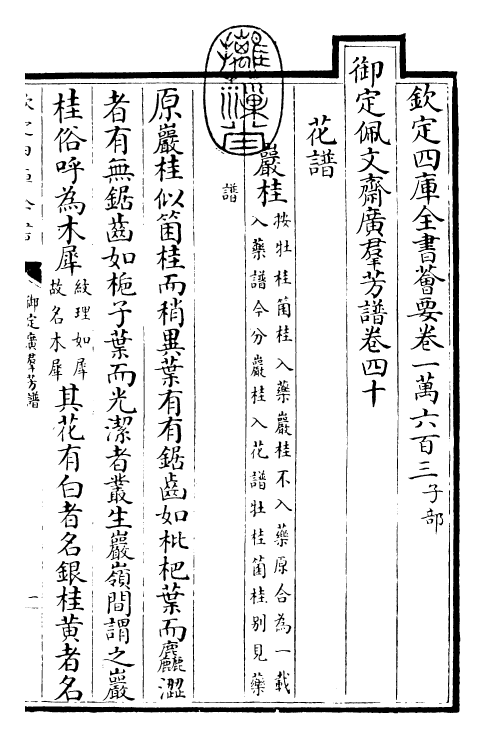 欽定四庫全書薈要卷一萬六百三子部
御定佩文齋廣羣芳譜卷四十
花譜
巖桂按牡桂箘桂入藥巖桂不入藥原合為一載
入藥譜今分巖桂入花譜牡桂箘桂别見藥
譜
原巖桂似箘桂而稍異葉有有鋸齒如枇杷葉而麤澀
者有無鋸齒如梔子葉而光潔者叢生巖嶺間謂之巖
桂俗呼為木犀紋理如犀
故名木犀其花有白者名銀桂黄者名
御定廣羣芳譜
一